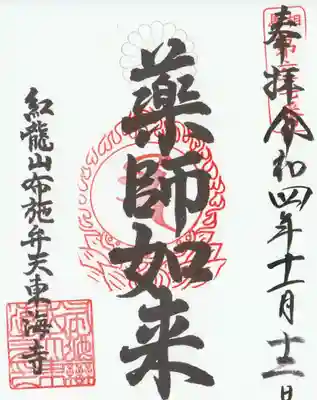 奉拝 令和四年十二月十三日
薬師如来
紅龍山布施弁天東海寺